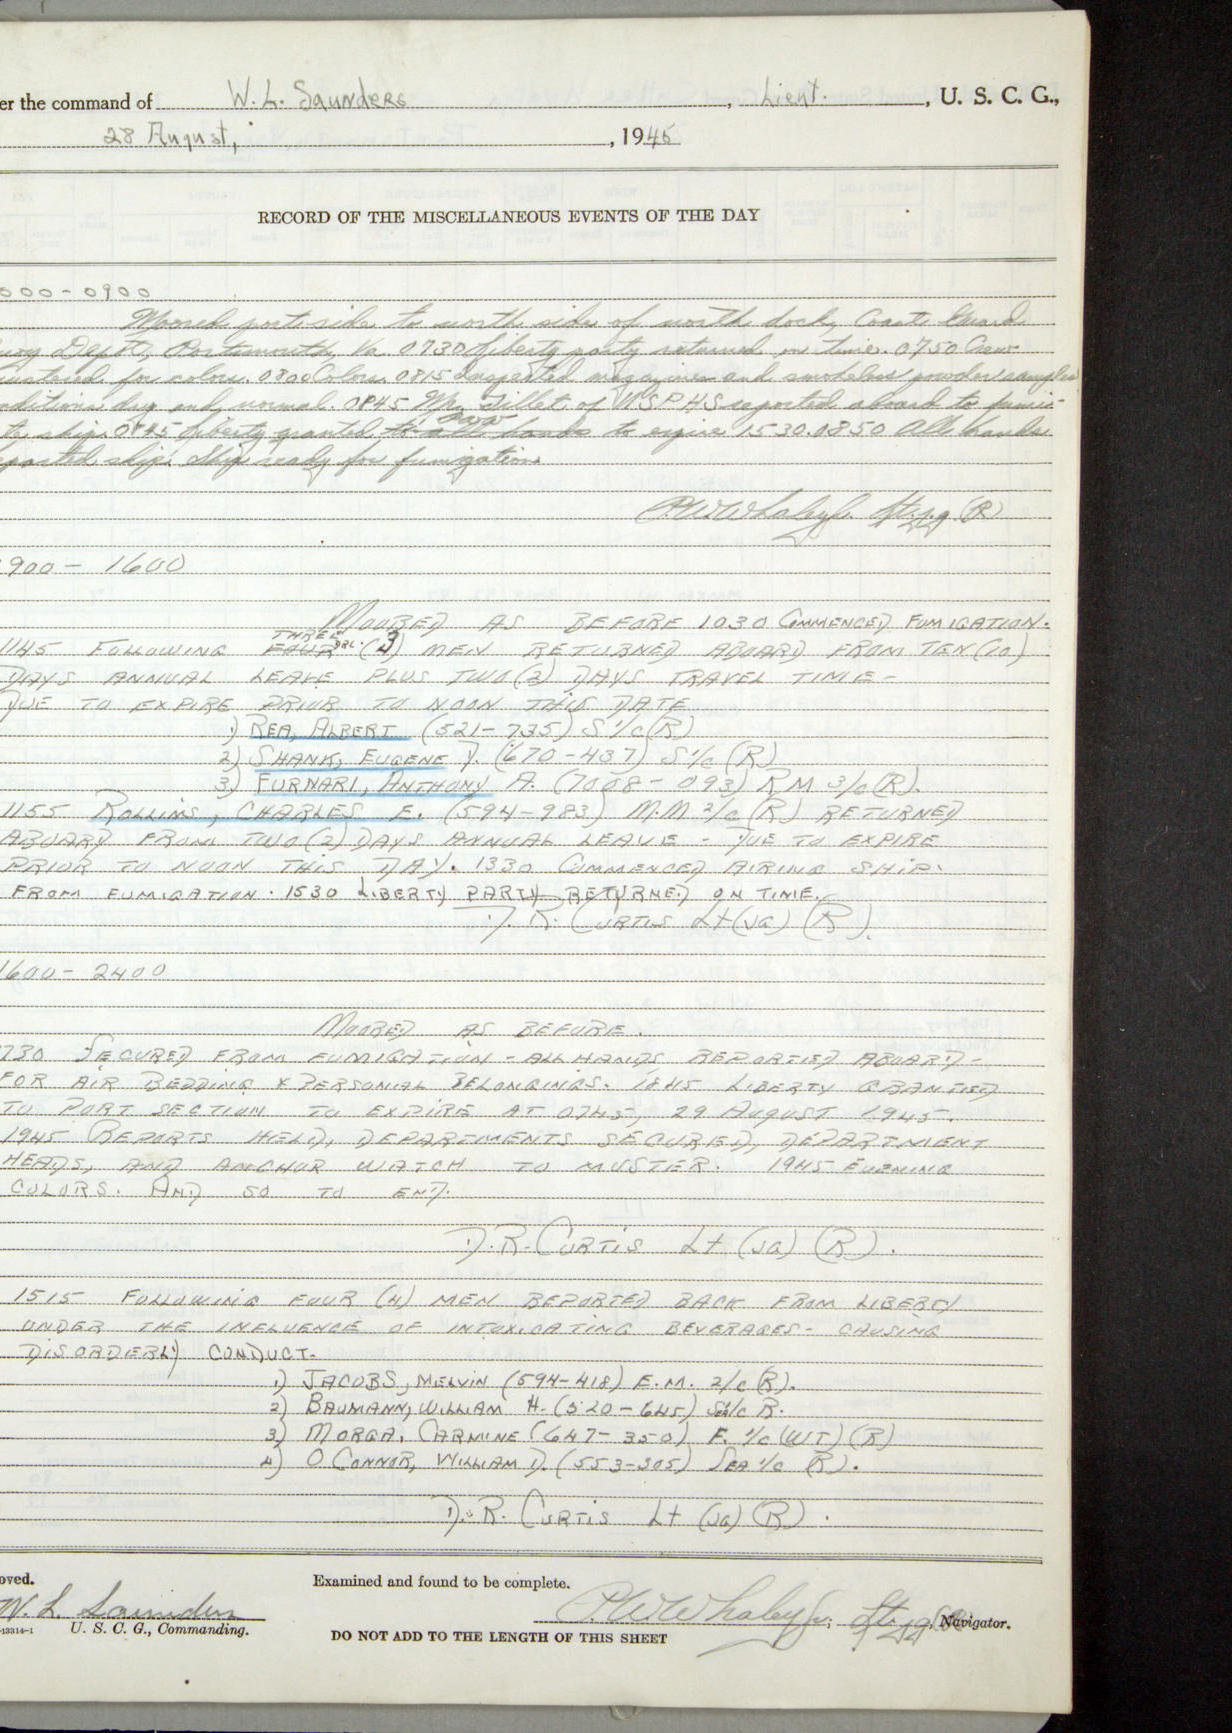 er the command of W. L. Saunders, Lieut., U. S. C. G.,
28 August, , 1945
RECORD OF THE MISCELLANEOUS EVENTS OF THE DAY
000-0900
Moored port side to north side of north dock, Coast Guard
Depot, Portsmouth, Va. 0730 Liberty party returned on time. 0750 Crew
mustered for colors. 0800 Colors. 0815 Inspected magazines and smokeless powder samples
condition dry and normal. 0845 Mr. Tillet of USPHS reported aboard to fumi-
te ship. 0845 Liberty granted to all hands to expire 1530. 0850 All hands
departed ship. Ship ready for fumigation.
P.W. Whaley Jr. Lt. j.g. (R)
900 - 1600
MOORED AS BEFORE 1030 COMMENCED FUMIGATION.
THREE
1145 FOLLOWING FOUR (3) MEN RETURNED ABOARD FROM TEN (10)
DAYS ANNUAL LEAVE PLUS TWO (2) DAYS TRAVEL TIME -
DUE TO EXPIRE PRIOR TO NOON THIS DATE
1) REA, ALBERT (521-735) S 1/c (R)
2) SHANK, EUGENE D. (670-437) S 1/c (R)
3) FURNARI, ANTHONY A. (7008-093) RM 3/c (R).
1155 ROLLINS, CHARLES E. (594-983) M.M. 2/c (R) RETURNED
ABOARD FROM TWO (2) DAYS ANNUAL LEAVE - DUE TO EXPIRE
PRIOR TO NOON THIS DAY. 1330 COMMENCED AIRING SHIP.
FROM FUMIGATION. 1530 LIBERTY PARTY RETURNED ON TIME.
D. R. CURTIS Lt (JG) (R).
1600 - 2400
MOORED AS BEFORE.
1730 SECURED FROM FUMIGATION - ALL HANDS REPORTED ABOARD -
FOR AIR BEDDING & PERSONAL BELONGINGS. 1845 LIBERTY GRANTED
TO PORT SECTION TO EXPIRE AT 0745, 29 AUGUST 1945.
1945 REPORTS HELD, DEPARTMENTS SECURED, DEPARTMENT
HEADS, AND ANCHOR WATCH TO MUSTER. 1945 EVENING
COLORS. AND SO TO END.
D. R. CURTIS Lt (JG) (R).
1515 FOLLOWING FOUR (4) MEN REPORTED BACK FROM LIBERTY
UNDER THE INFLUENCE OF INTOXICATING BEVERAGES - CAUSING
DISORDERLY CONDUCT.
1) JACOBS, MELVIN (594-418) F.M. 2/c (R).
2) BAUMANN, WILLIAM H. (520-645) S2/c R.
3) MORGA, CARMINE (647-350) F. 1/c (WT) (R)
4) O CONNOR, WILLIAM D. (553-305) SEA 1/c (R).
D. R. CURTIS Lt (JG) (R).
oved.
Examined and found to be complete.
W. L. Saunders
U. S. C. G., Commanding.
P.W. Whaley Jr., Lt. jg (R), Navigator.
-13314-1
DO NOT ADD TO THE LENGTH OF THIS SHEET